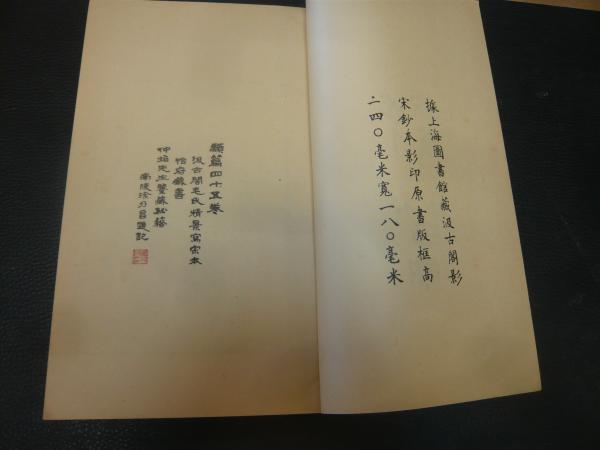 據上海圖書館藏汲古閣影
宋鈔本影印原書版框高
二四〇毫米寬一八〇毫米
類篇四十五卷
汲古閣毛氏精景寫宋本
怡府藏書
仲炤先生鑒藏秘籍
南陵徐乃昌題記